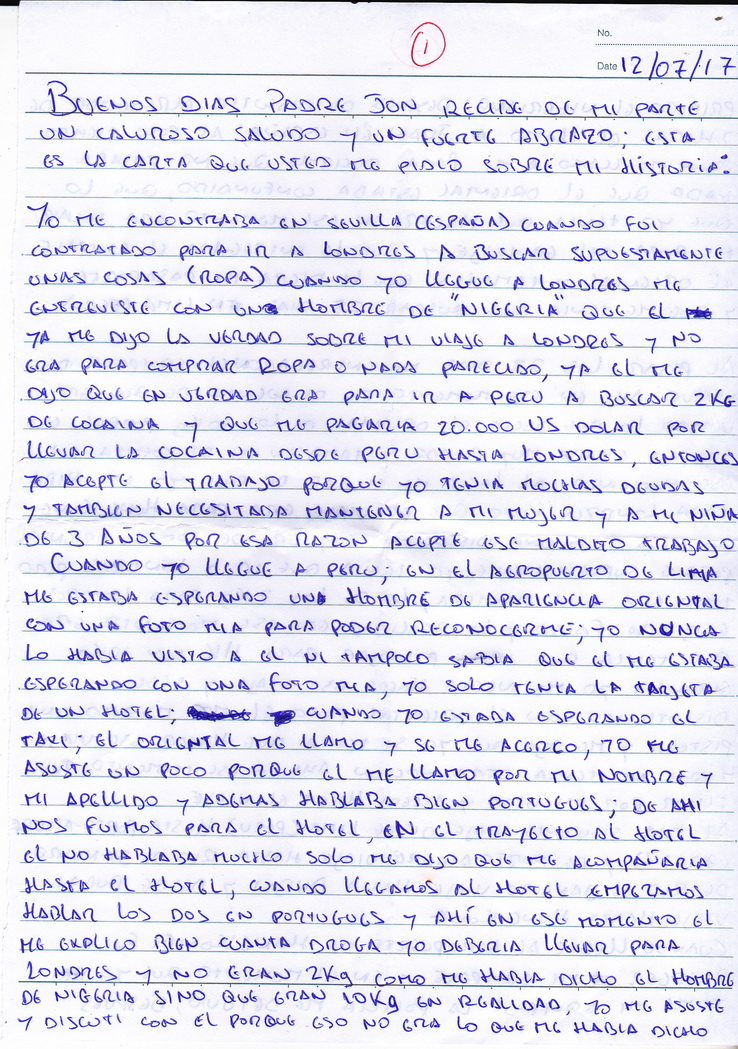 1
No.
Date 12/07/17
BUENOS DIAS PADRE JON RECIBE DE MI PARTE
UN CALUROSO SALUDO Y UN FUERTE ABRAZO; ESTA
ES LA CARTA QUE USTED ME PIDIO SOBRE MI HISTORIA:
YO ME ENCONTRABA EN SEVILLA (ESPAÑA) CUANDO FUI
CONTRATADO PARA IR A LONDRES A BUSCAR SUPUESTAMENTE
UNAS COSAS (ROPA) CUANDO YO LLEGUE A LONDRES ME
ENTREVISTE CON UN HOMBRE DE "NIGERIA" QUE EL
YA ME DIJO LA VERDAD SOBRE MI VIAJE A LONDRES Y NO
ERA PARA COMPRAR ROPA O NADA PARECIDO, YA EL ME
DIJO QUE EN VERDAD ERA PARA IR A PERU A BUSCAR 2KG
DE COCAINA Y QUE ME PAGARIA 20.000 US DOLAR POR
LLEVAR LA COCAINA DESDE PERU HASTA LONDRES, ENTONCES
YO ACEPTE EL TRABAJO PORQUE YO TENIA MUCHAS DEUDAS
Y TAMBIEN NECESITADA MANTENER A MI MUJER Y A MI NIÑA
DE 3 AÑOS POR ESA RAZON ACEPTE ESE MALDITO TRABAJO
CUANDO YO LLEGUE A PERU; EN EL AEROPUERTO DE LIMA
ME ESTABA ESPERANDO UN HOMBRE DE APARIENCIA ORIENTAL
CON UNA FOTO MIA PARA PODER RECONOCERME; YO NUNCA
LO HABIA VISTO A EL NI TAMPOCO SABIA QUE EL ME ESTABA
ESPERANDO CON UNA FOTO MIA, YO SOLO TENIA LA TARJETA
DE UN HOTEL; CUANDO YO ESTABA ESPERANDO EL
TAXI; EL ORIENTAL ME LLAMO Y SE ME ACERCO, YO ME
ASUSTE UN POCO PORQUE EL ME LLAMO POR MI NOMBRE Y
MI APELLIDO Y ADEMAS HABLABA BIEN PORTUGUES; DE AHI
NOS FUIMOS PARA EL HOTEL, EN EL TRAYECTO AL HOTEL
EL NO HABLABA MUCHO SOLO ME DIJO QUE ME ACOMPAÑARIA
HASTA EL HOTEL, CUANDO LLEGAMOS AL HOTEL EMPERAMOS
HABLAR LOS DOS EN PORTUGUES Y AHÍ EN ESE MOMENTO EL
ME EXPLICO BIEN CUANTA DROGA YO DEBERIA LLEVAR PARA
LONDRES Y NO ERAN 2Kg COMO ME HABIA DICHO EL HOMBRE
DE NIGERIA SINO QUE ERAN 10Kg EN REALIDAD, YO ME ASUSTE
Y DISCUTI CON EL PORQUE ESO NO ERA LO QUE ME HABIA DICHO